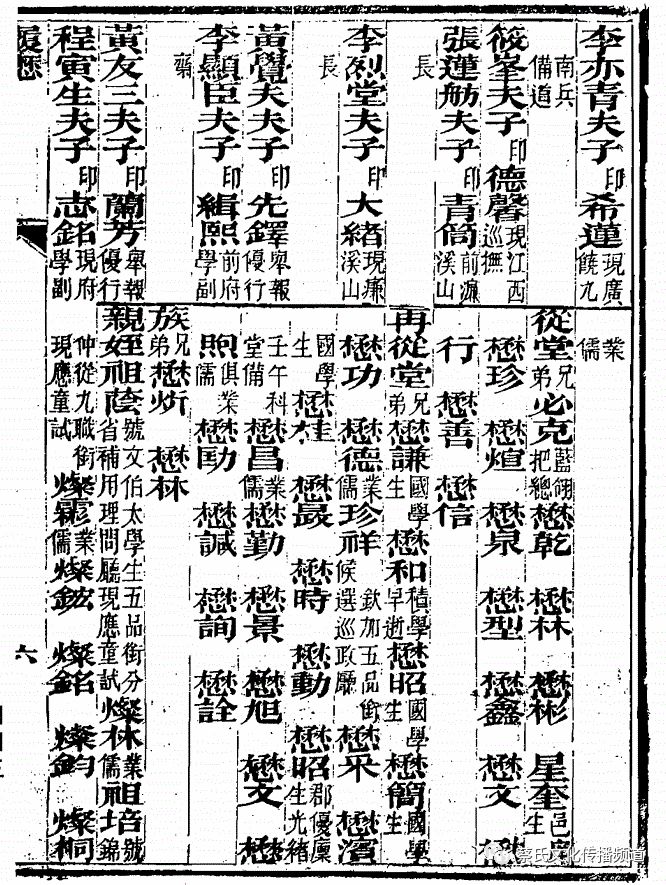 李亦青夫子印希蓮現廣饒九
南兵備道
筱峯夫子印德馨現江西巡撫
張蓮舫夫子印青筒前濂溪山
長
李烈堂夫子印大緒現濂溪山
長
黃覺夫夫子印先鐸舉報優行
李顯臣夫子印緝熙前府學副
齋
黃友三夫子印蘭芳舉報優行
程寅生夫子印志銘現府學副
履歷
業儒
從堂兄弟必克藍翎把總懋乾 懋林 懋彬 星奎邑庠生
懋珍 懋煊 懋泉 懋型 懋鑫 懋文
行 懋善 懋信
再從堂兄弟懋謙國學生懋和積學早逝懋昭國學生懋簡國學生
懋功 懋德業儒珍祥欽加五品銜候選巡政廳懋采 懋濱
國學生懋桂 懋最 懋時 懋動 懋昭郡優廩生光緒
壬午科堂備懋昌業儒懋勤 懋景 懋旭 懋文 懋
煦俱業儒 懋諴 懋詢 懋詮
族兄弟懋炘 懋林
親姪祖蔭號文伯太學生五品銜分省補用理問廳現應童試燦林業儒祖培號錦
仲從九職銜現應童試燦霖業儒燦鉉 燦銘 燦鈞 燦桐
六
蔡氏文化传播频道